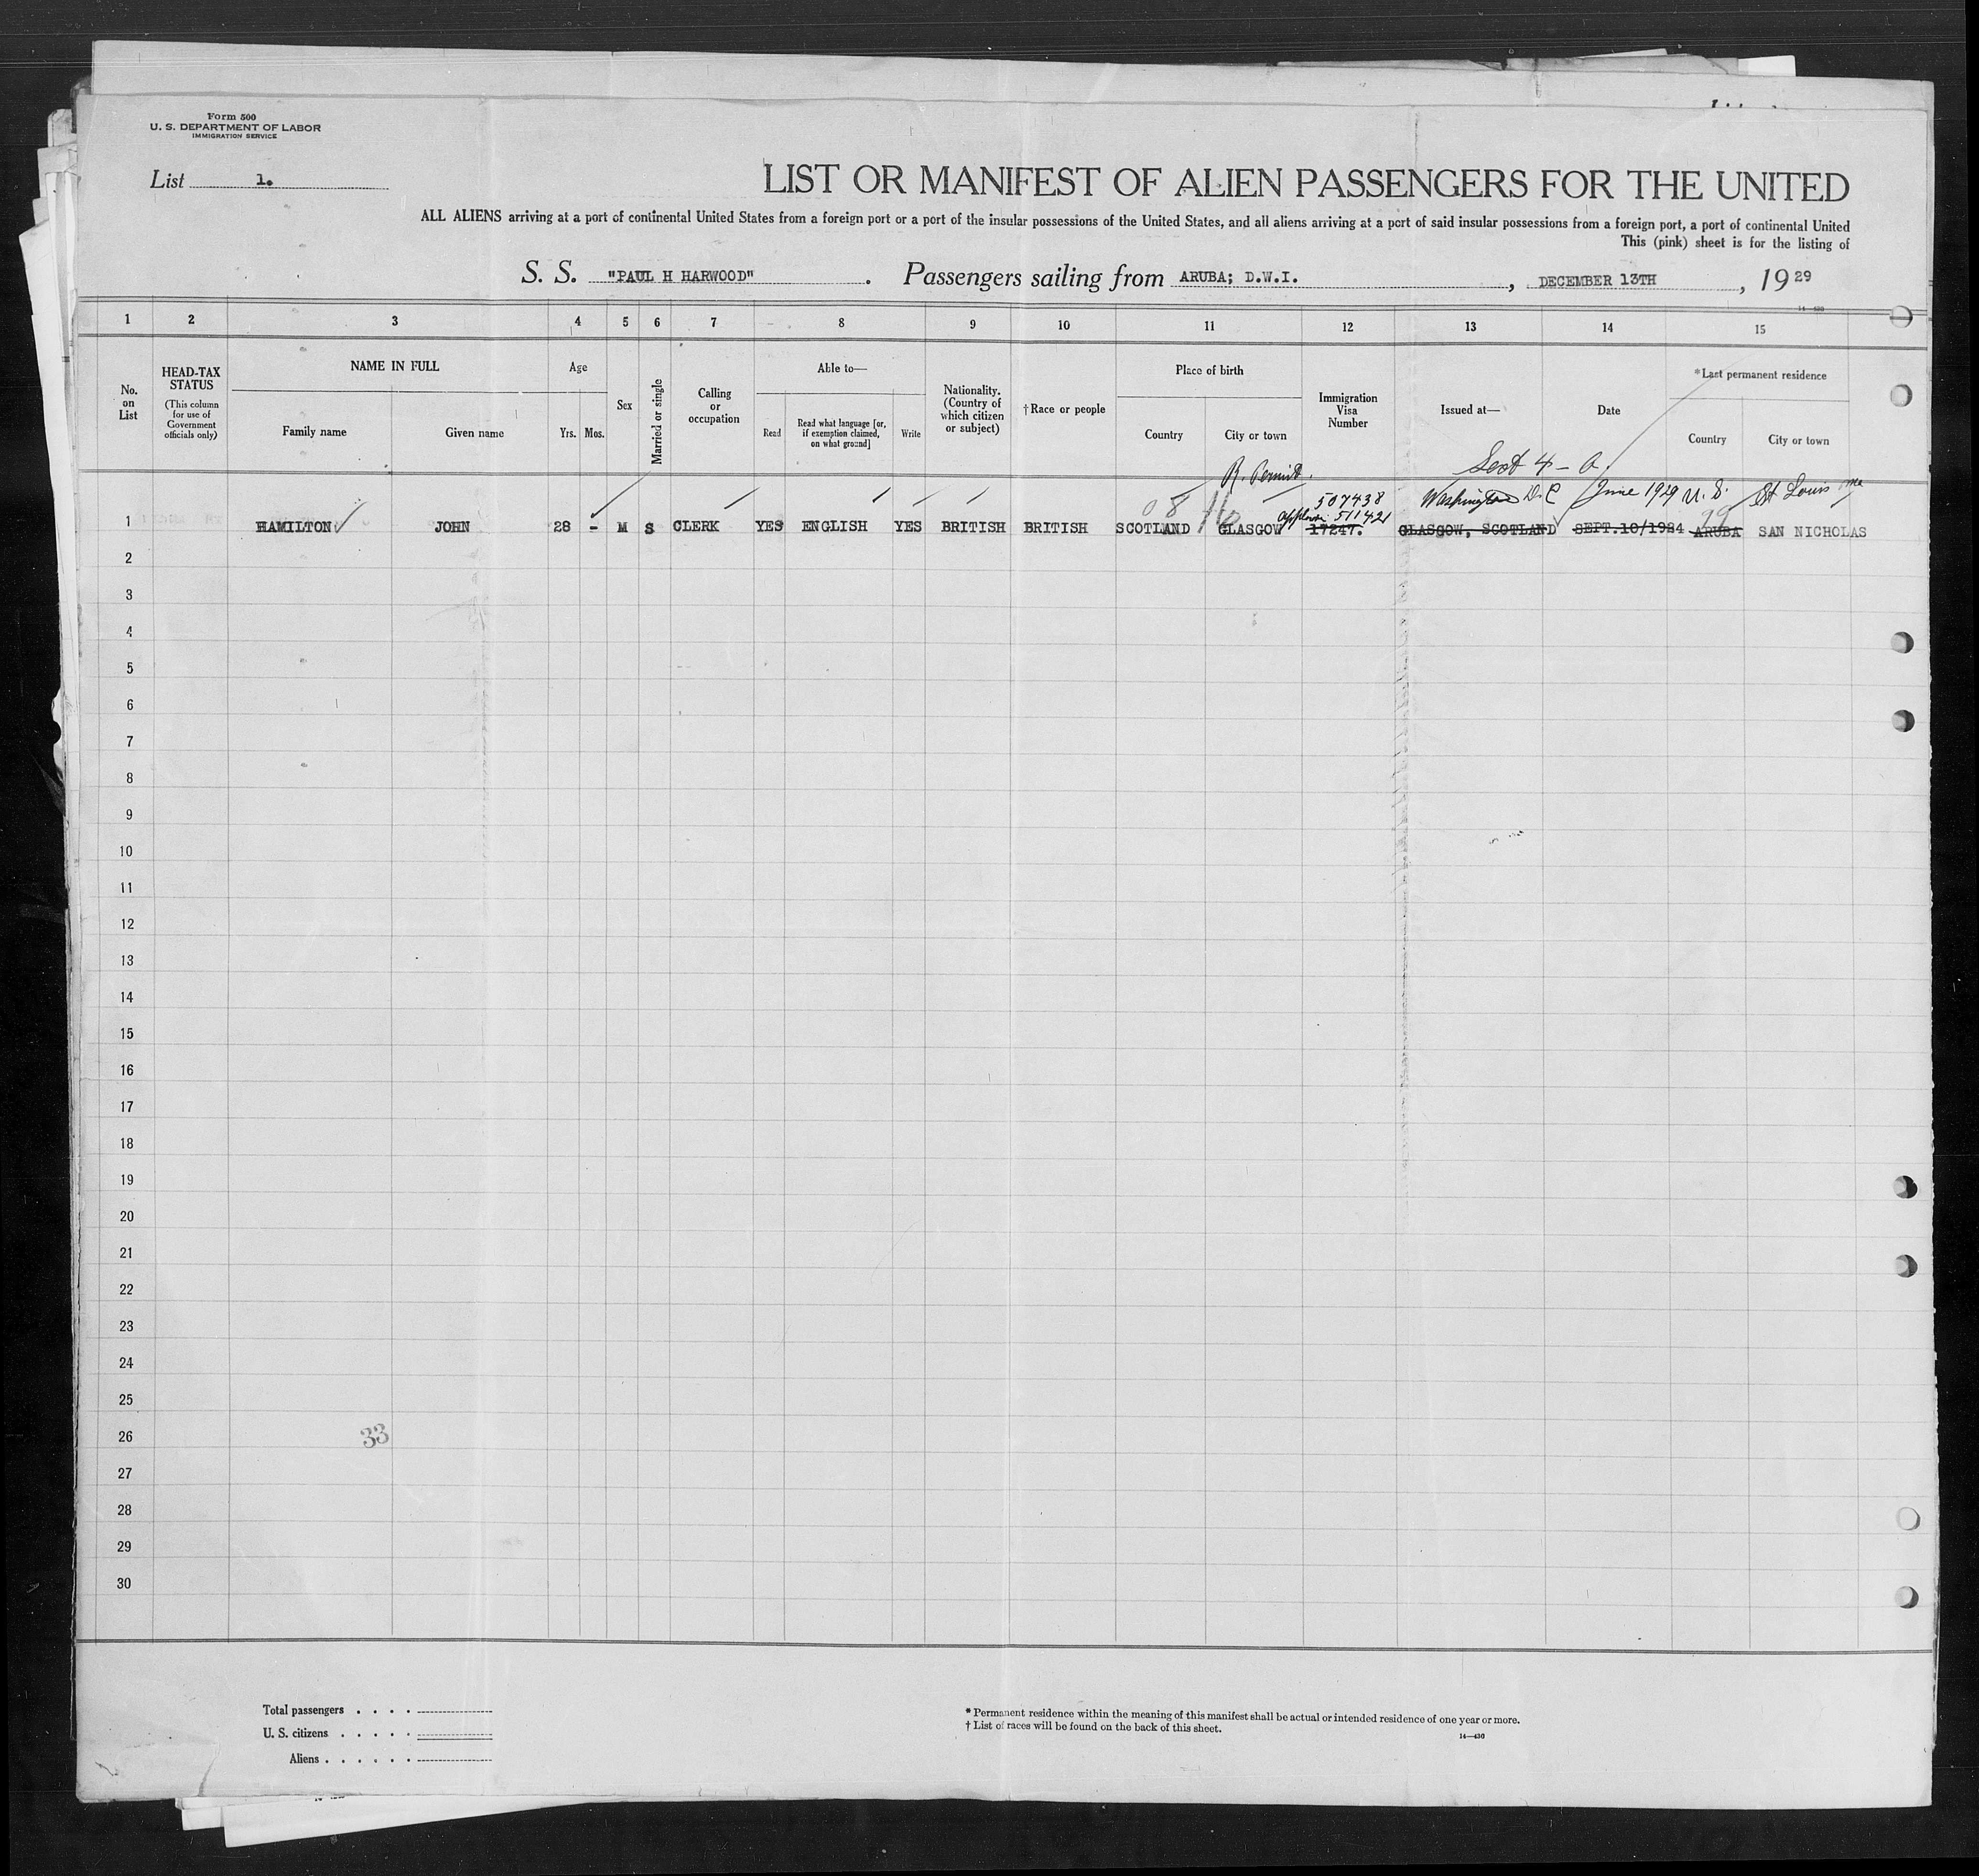 Form 500
U. S. DEPARTMENT OF LABOR
IMMIGRATION SERVICE
List 1.
LIST OR MANIFEST OF ALIEN PASSENGERS FOR THE UNITED
ALL ALIENS arriving at a port of continental United States from a foreign port or a port of the insular possessions of the United States, and all aliens arriving at a port of said insular possessions from a foreign port, a port of continental United
This (pink) sheet is for the listing of
S. S. "PAUL H HARWOOD". Passengers sailing from ARUBA; D.W.I., DECEMBER 13TH, 1929
14—430
1 2 3 4 5 6 7 8 9 10 11 12 13 14 15
No. on List
HEAD-TAX STATUS
(This column for use of Government officials only)
NAME IN FULL
Family name
Given name
Age
Yrs. Mos.
Sex
Married or single
Calling or occupation
Able to—
Read
Read what language [or, if exemption claimed, on what ground]
Write
Nationality. (Country of which citizen or subject)
†Race or people
Place of birth
Country
City or town
Immigration Visa Number
Issued at—
Date
*Last permanent residence
Country
City or town
R. Permit. Sect 4 - a.
08 16 507438 Washington D.C June 1929 U.S. St Louis Mo
511421 99
1 HAMILTON JOHN 28 - M S CLERK YES ENGLISH YES BRITISH BRITISH SCOTLAND GLASGOW 17247. GLASGOW, SCOTLAND SEPT.10/1924 ARUBA SAN NICHOLAS
2
3
4
5
6
7
8
9
10
11
12
13
14
15
16
17
18
19
20
21
22
23
24
25
26
33
27
28
29
30
Total passengers . . . .
U. S. citizens . . . . .
Aliens . . . . . .
* Permanent residence within the meaning of this manifest shall be actual or intended residence of one year or more.
† List of races will be found on the back of this sheet.
14—430